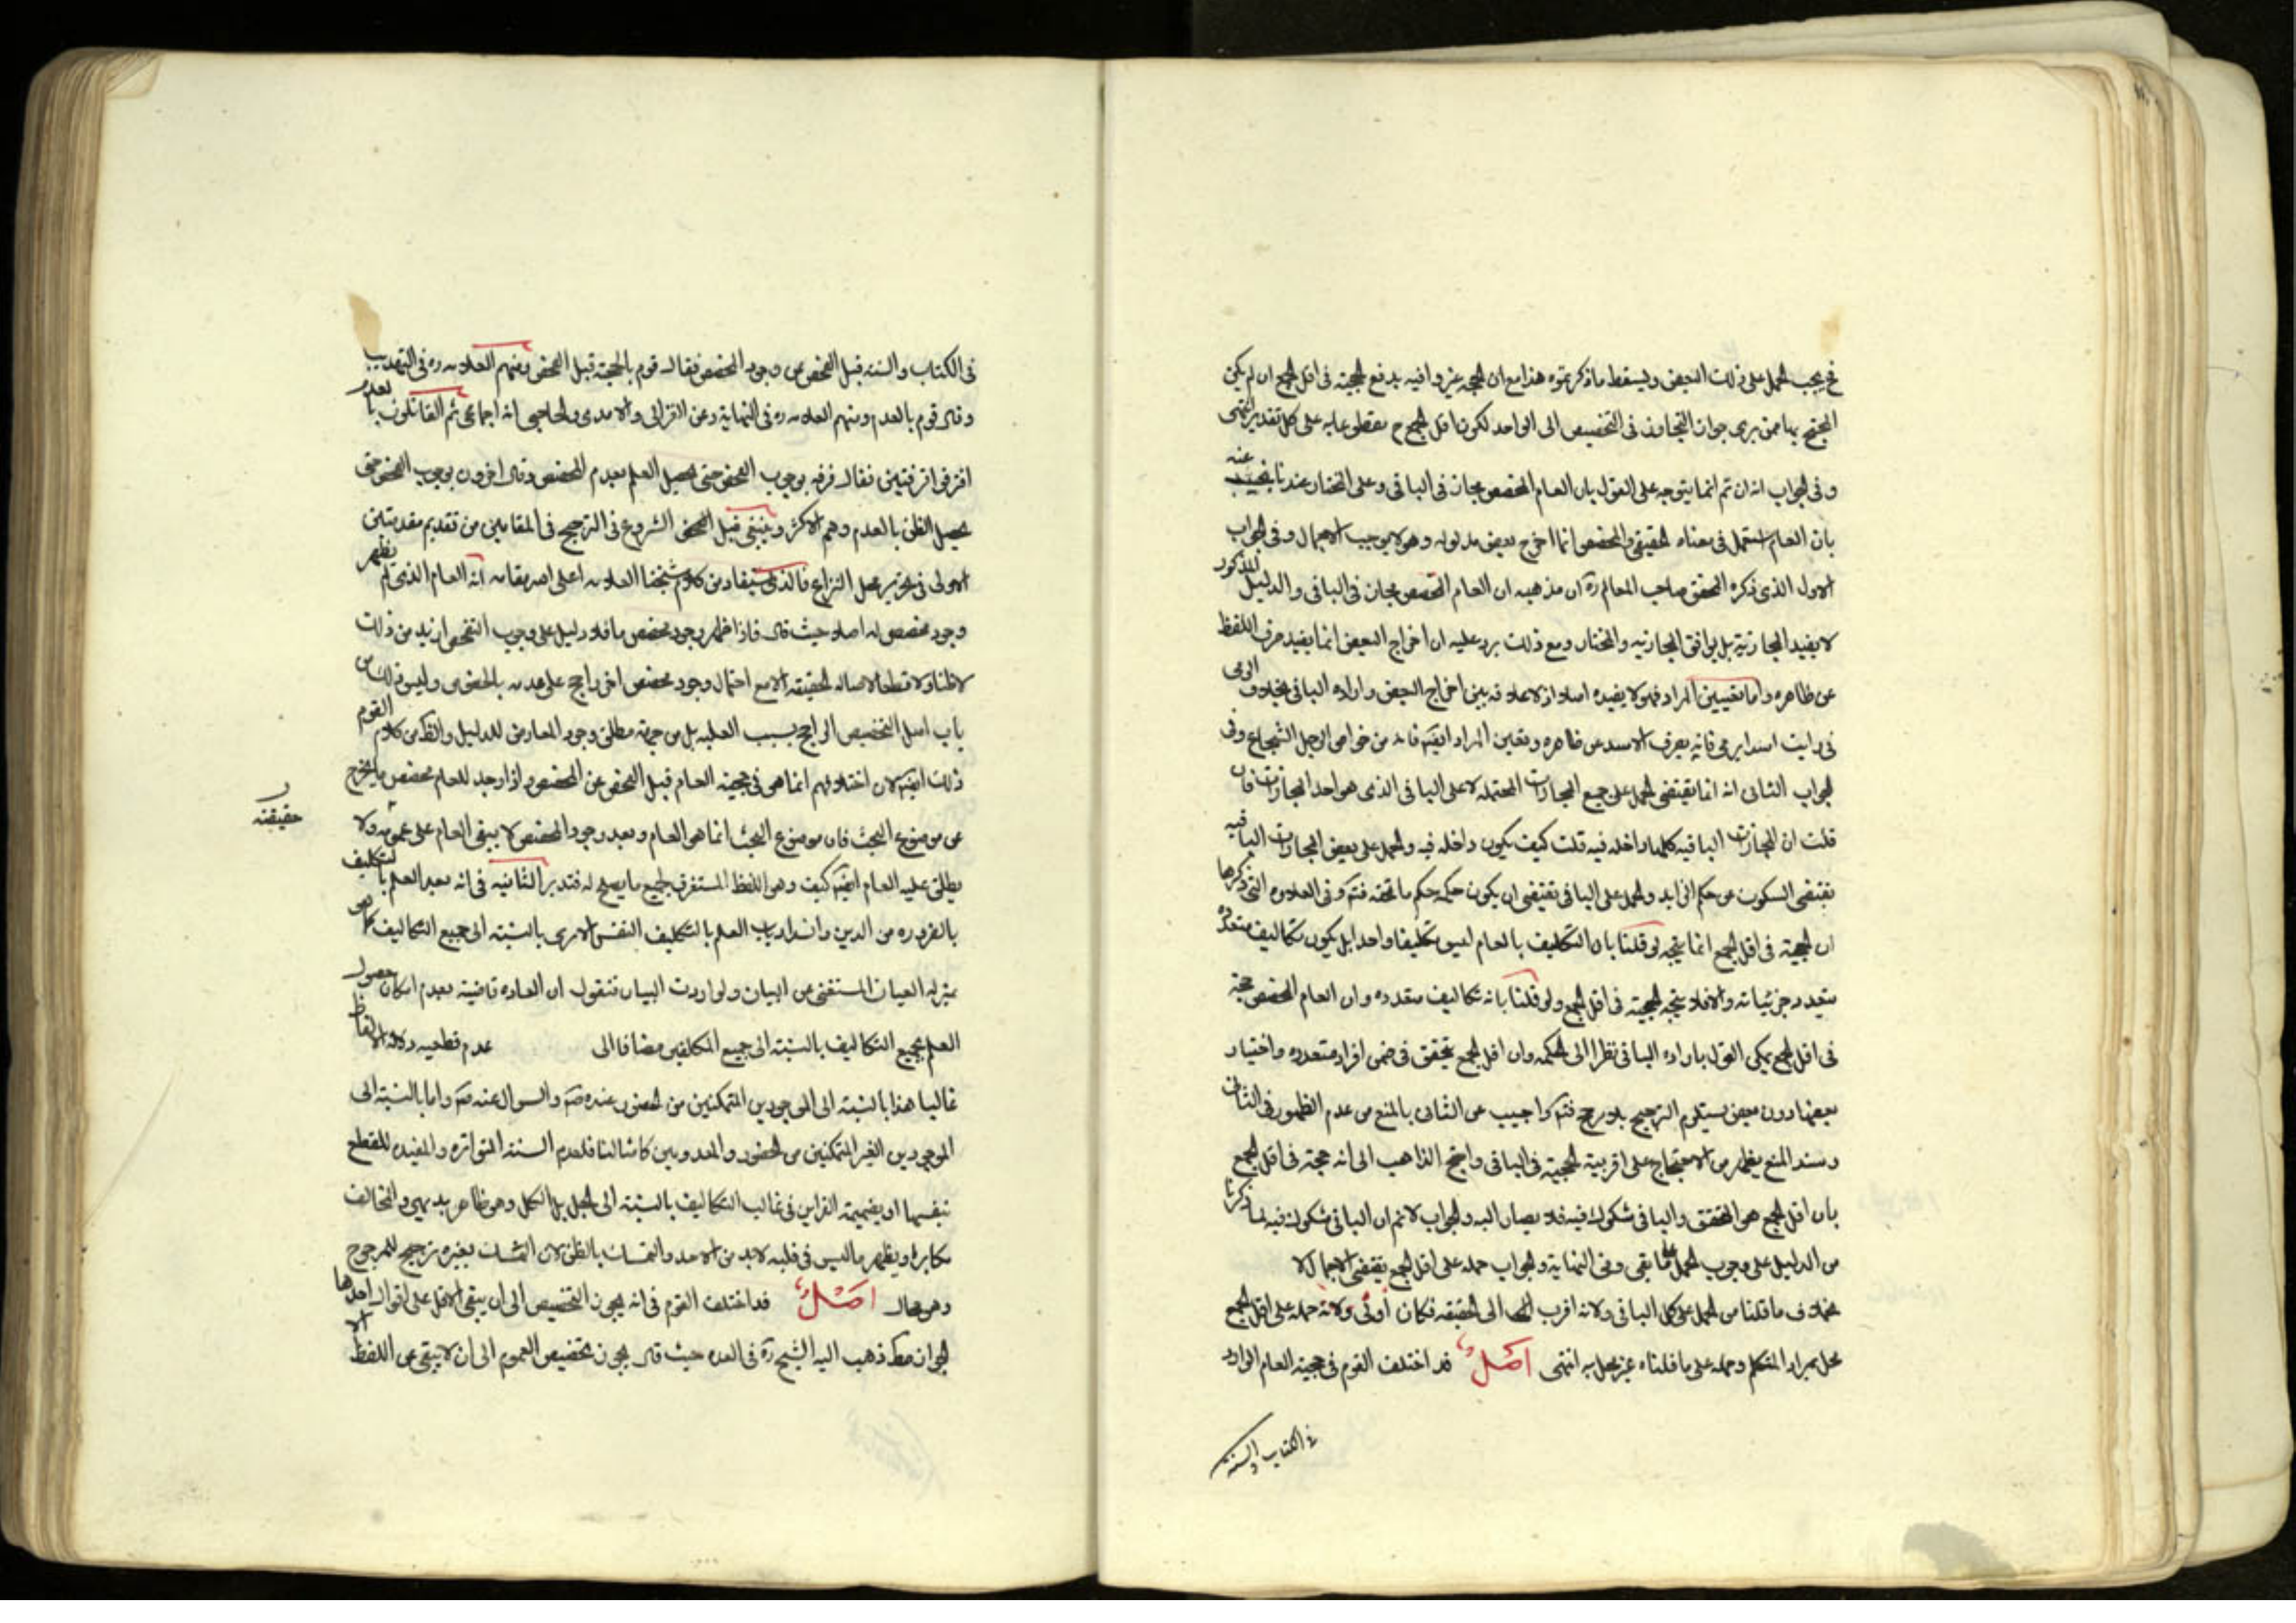 فح يجب الحمل على ذلك البعض ويسقط ما ذكرتموه هذا مع ان الحجة غير وافيه بدفع الحجية فى اقل الجمع ان لم يكن
المحتج بها ممن يرى جواز التجاوز فى التخصيص الى الواحد لكون اقل الجمع ح مقطوعا به على كل تقدير انتهى
وفى الجواب انه ان تم انما يتوجه على القول بان العام المخصص مجاز فى الباقى وعلى المختار عندنا فنجيب عنه
بان العام استعمل فى معناه الحقيقى والمخصص انما اخرج بعض مدلوله وهو لا يوجب الاجمال وفى الجواب
الاول الذى ذكره المحقق صاحب المعالم ره ان مذهبه ان العام المخصص مجاز فى الباقى والدليل المذكور
لا يفيد المجازية بل يوافق المجازيه والمختار ومع ذلك يرد عليه ان اخراج البعض انما يفيد صرف اللفظ
عن ظاهره واما تعيين المراد فهو لا يفيده اصلا اذ لا علاقه بين اخراج البعض واراده الباقى بخلاف يرمى
فى رايت اسدا يرمى فانه يصرف الاسد عن ظاهره ويعين المراد ايضا فانه من خواص الرجل الشجاع وفى
الجواب الثانى انه انما يقتضى الحمل على جميع المجازات المحتمله لا على الباقى الذى هو احد المجازات فان
قلت ان المجازات الباقيه كلها داخله فيه قلت كيف يكون داخله فيه والحمل على بعض المجازات الباقيه
يقتضى السكوت عن حكم الزايد والحمل على الباقى يقتضى ان يكون حكمه حكم ما تحته فتـ وفى العلاوه التى ذكرها
ان الحجية فى اقل الجمع انما يتجه لو قلنا بان التكليف بالعام ليس تكليفا واحدا بل يكون تكاليف متعدده
بتعدد جزئياته والا فلا يتجه الحجية فى اقل الجمع ولو قلنا بانه تكاليف متعدده وان العام المخصص حجة
فى اقل الجمع يمكن القول باراده الباقى نظرا الى الحكمه وان اقل الجمع يتحقق فى ضمن افراد متعدده واختيار
بعضها دون بعض يستلزم الترجيح بلا مرجح فتـ واجيب عن الثانى بالمنع من عدم الظهور فى الثانى
وسند المنع يظهر من الاحتجاج على اقربية الحجية فى الباقى واحتج الذاهب الى انه حجة فى اقل الجمع
بان اقل الجمع هو المتحقق والباقى مشكوك فيه فلا يصار اليه والجواب لا نم ان الباقى مشكوك فيه لما ذكرنا
من الدليل على وجوب الحمل على ما بقى وفى النهاية والجواب حمله على اقل الجمع يقتضى الاجمال لا
بخلاف ما قلنا من الحمل على كل الباقى ولانه اقرب الى الحقيقه فكان اولى ولانه حمله على اقل الجمع
مخل بمراد المتكلم وحمله على ما قلناه غير مخل به انتهى اصل قد اختلف القوم فى حجية العام الوارد
فى الكتاب والسنة
فى الكتاب والسنه قبل الفحص عن وجود المخصص فقال قوم بالحجية قبل الفحص ومنهم العلامه ره فى التهذيب
وقال قوم بالعدم ومنهم العلامه ره فى النهاية وعن الغزالى والامدى والحاجبى انه اجماعى ثم القائلون بالعدم
افترقوا فرقتين فقال فرقه بوجوب الفحص حتى يحصل العلم بعدم المخصص وقال اخرون بوجوب الفحص حتى
يحصل الظن بالعدم وهم الاكثر وينبغى قبل الشروع فى الترجيح فى المقامين من تقديم مقدمتين
الاولى فى تحرير محل النزاع فالذى يستفاد من كلام شيخنا العلامه اعلى الله مقامه انه العام الذى لم يظهر
وجود مخصص له اصلا حيث قال فاذا ظهر وجود مخصص ما فلا دليل على وجوب التفحص ازيد من ذلك
لا ظنا ولا قطعا لاصالة الحقيقه الا مع احتمال وجود مخصص اخر راجح على عدمه بالخصوص وليس ذلك من
باب اصل التخصيص الراجح بسبب الغلبه بل من جهة مطلق وجود المعارض للدليل والظ من كلام القوم
ذلك ايضا لان اختلافهم انما هو فى حجية العام قبل الفحص عن المخصص واذا وجد للعام مخصص ما يخرج
عن موضوع البحث فان موضوع البحث انما هو العام وبعد وجود المخصص لا يبقى العام على عمومه ولا
حقيقته
يطلق عليه العام ايضا كيف وهو اللفظ المستغرق لجميع ما يصلح له فتدبر الثانيه فى انه بعد العلم بالتكليف
بالضروره من الدين وانسداد باب العلم بالتكليف النفس الامرى بالنسبة الى جميع التكاليف كما هو
بمنزلة العيان المستغنى عن البيان ولو اردت البيان فنقول ان العاده قاضية بعدم امكان حصول
العلم بجميع التكاليف بالنسبة الى جميع المكلفين مضافا الى عدم قطعيه دلالة الالفاظ
غالبا هذا بالنسبة الى الموجودين المتمكنين من الحضور عنده ص والسوال عنه ص واما بالنسبة الى
الموجودين الغير المتمكنين من الحضور والمعدومين كامثالنا فلعدم السنة المتواتره والمفيده للقطع
بنفسها او بضميمة القراين فى غالب التكاليف بالنسبة الى الجل بل الكل وهو ظاهر بديهى والمخالف
مكابر او يظهر ما ليس فى قلبه لا بد من الاخذ والتمسك بالظن لان التمسك بغيره ترجيح للمرجوح
وهو محال اصل قد اختلف القوم فى انه يجوز التخصيص الى ان يبقى الاقل على اقوال احدها
الجواز مط ذهب اليه الشيخ ره فى العده حيث قال يجوز تخصيص العموم الى ان لا يبقى من اللفظ الا